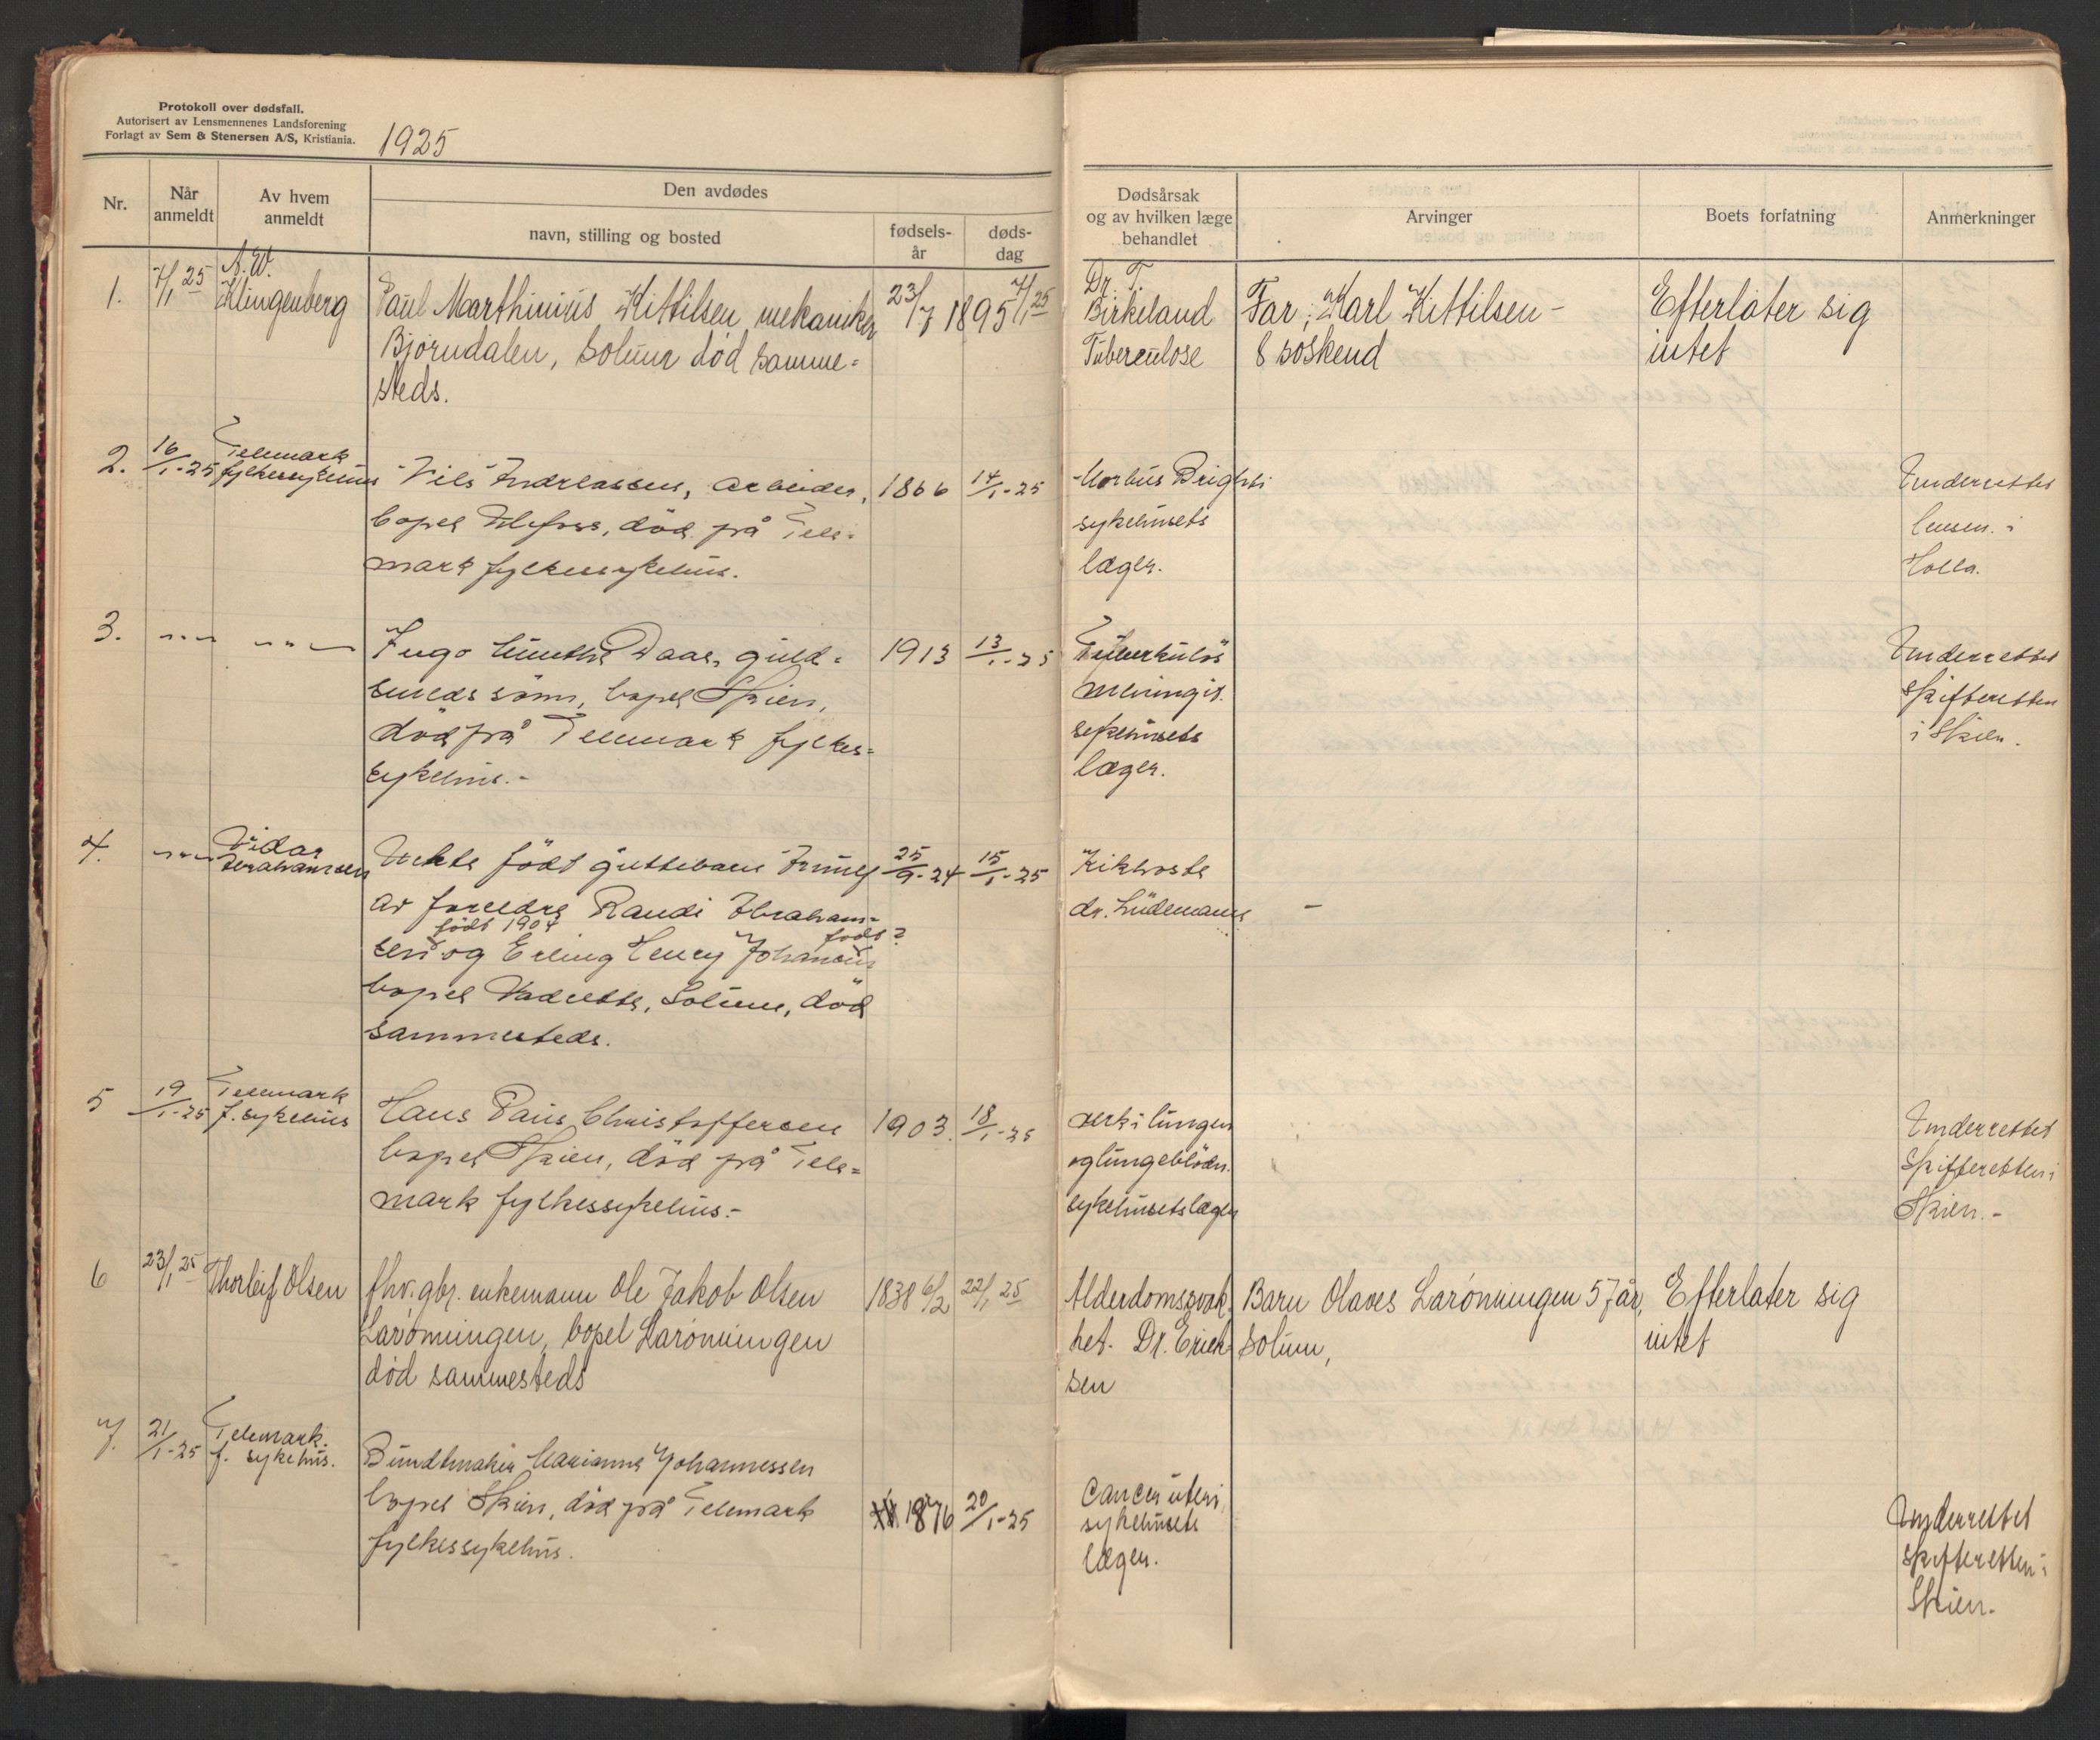 Protokoll over dødsfall.
Autorisert av Lensmennenes Landsforening
Forlagt av Sem & Stenersen A/S, Kristiania.
1925
Nr.
Når anmeldt
Av hvem anmeldt
Den avdødes
navn, stilling og bosted
fødsels-
år
døds-
dag
Dødsårsak
og av hvilken læge
behandlet
Arvinger
Boets forfatning
Anmerkninger
1. 7/1 25 A. W. Klingenberg
Paul Marthinius Kittilsen mekaniker 23/7 1895 7/1 25
Bjørndalen, Solum død samme-
steds.
Dr. T.
Birkeland
Tuberculose
Far; Karl Kittilsen -
8 søskend
Efterlater sig
intet
2. 16/1-25 Telemark fylkessykehus
Nils Andreassen, arbeider, 1866 14/1-25
bopel Ulefoss, död på Tele-
mark fylkessykehus.
Morbus Brighti
sykehusets
læger.
Underrettet
lensm. i
Holla.
3. -"- -"-
Daae, guld-
smeds sönn, bopel Skien,
död på Telemark fylkes-
sykehus.-
1913 13/1-25
Tuberkulös
meningit.
sykehusets
læger.
Underrettet
Skifteretten
i Skien.
4. -"- Vidar Abrahamsen
Uekte födt guttebarn 25/9-24 15/1-25
av foreldre Randi Abraham-
födt 1904 födt?
sen og Erling Henry Johansen
bopel Solum, död
sammesteds.
Kikhoste
dr. Lüdemann
-
5 19/1-25 Telemark f. sykehus
Hans Paus Christoffersen 1903. 18/1-25
bopel Skien, död på Tele-
mark fylkessykehus.-
verk i lungen
og lungeblödn.
sykehusets læger
Underrettet
Skifteretten i
Skien.-
6 23/1 25 Thorleif Olsen
fhv. gbr. enkemann Ole Jakob Olsen 1838 6/2 22/1 25
Larønningen, bopel Larønningen
død sammesteds
Alderdomssvak-
het. Dr. Erick-
sen
Barn Olaves Larønningen 57 år,
Solum,
Efterlater sig
intet
7. 21/1-25 Telemark f. sykehus.
Bundtmaker Marianne Johannessen
bopel Skien, död på Telemark
fylkessykehus.
1876 20/1-25
Cancer uteri,
sykehusets
læger.
Underrettet
skifteretten i
Skien.